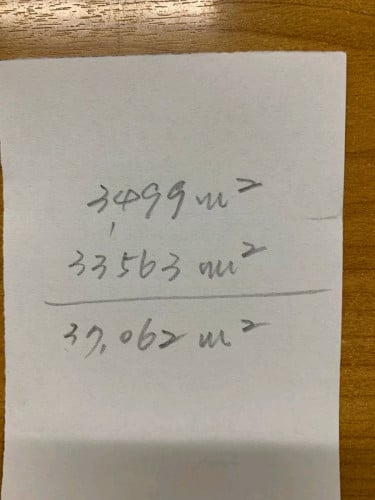 3,499 m²
33,563 m²
37,062 m²